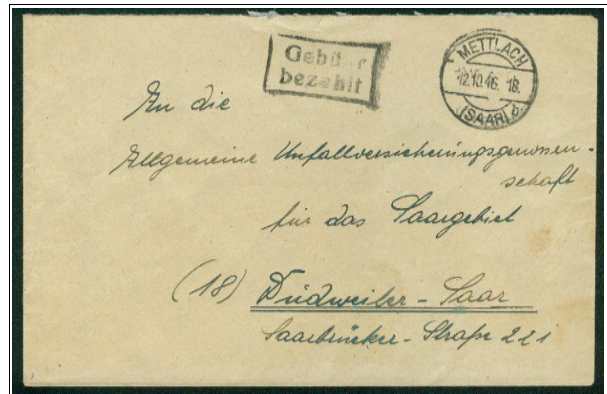 Gebühr
bezahlt
METTLACH
12.10.46. 18.
(SAAR) b
An die
Allgemeine Unfallversicherungsgenossen-
schaft
für das Saargebiet
(18) Dudweiler - Saar
Saarbrücker - Straße 221